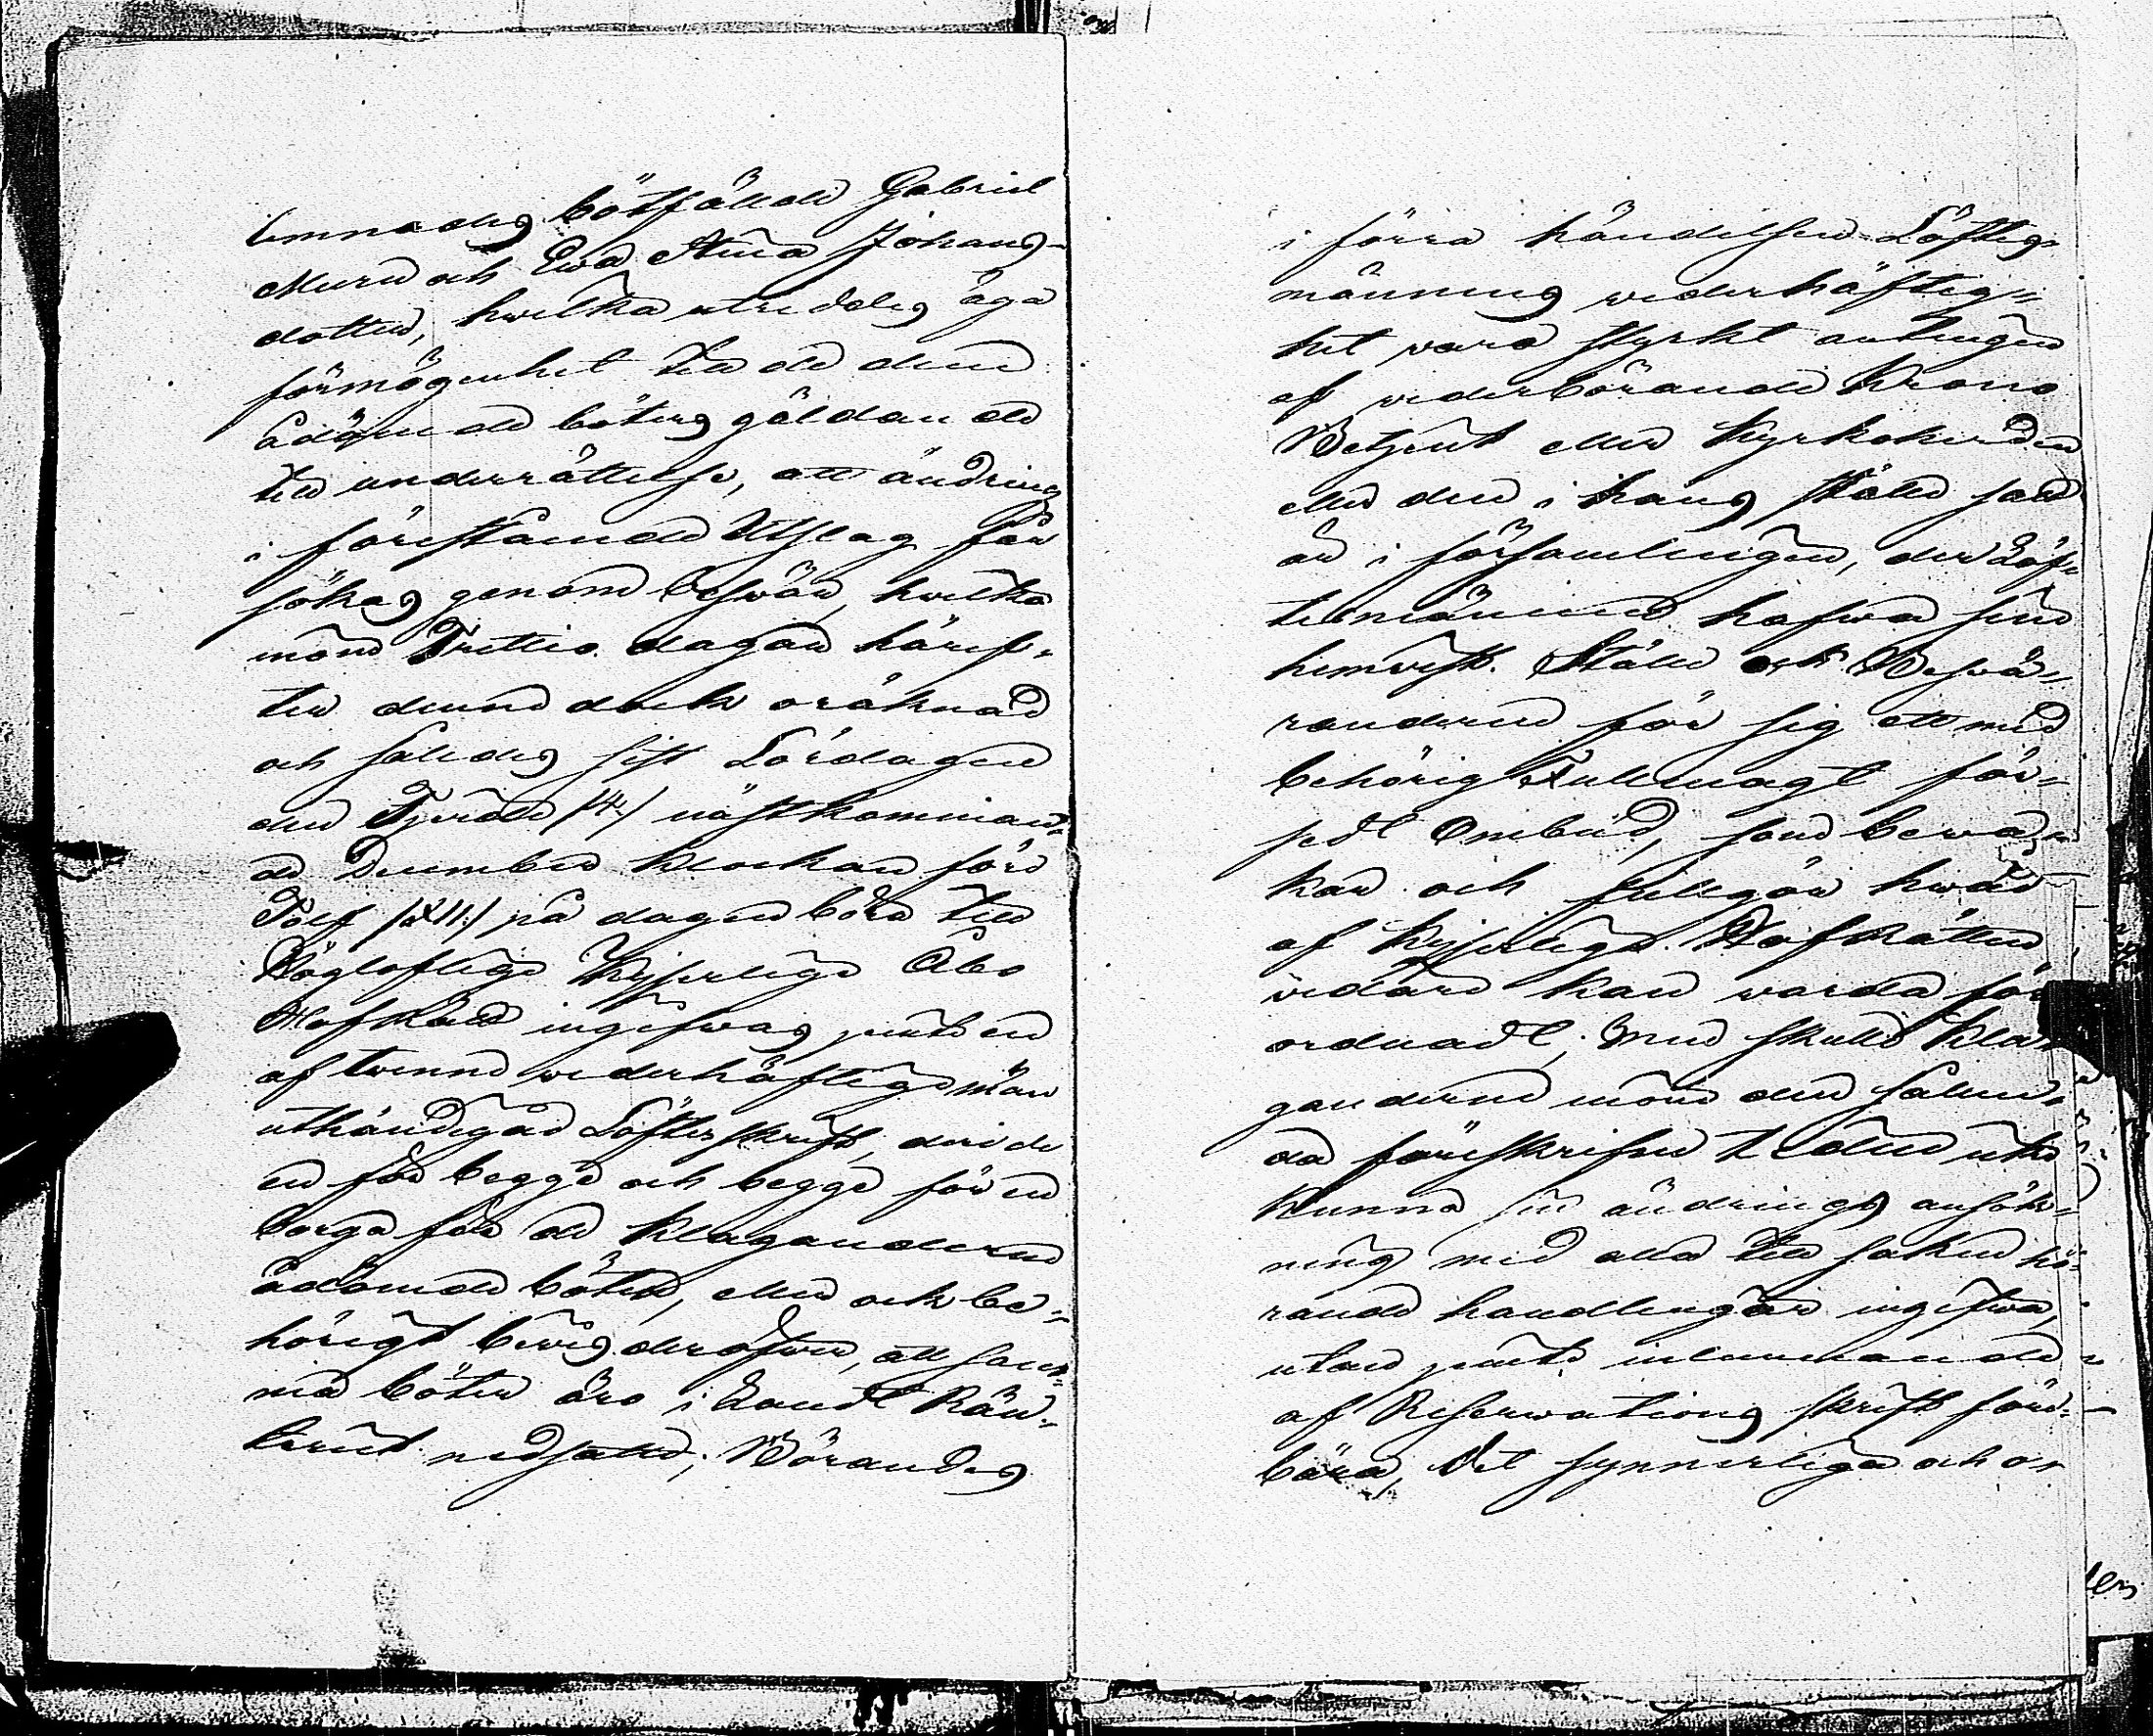 lemnades bötfällde Gabriel
Murn och Ewa Stina Johans-
dotter, hwilka utredeligs äga
förmögenhet till de dem
ådömde böters gäldande
till underrättelse, att ändring
i förestående Utslag får
sökas genom beswär, hwilka
inom Trettio dagar häref-
ter denne dock oräknad
och således sist Lördagen
den Fjerde /4/ nästkomman-
de December klockan före
Tolf /XII:/ på dagen böra till
Höglofliga Kejserliga Åbo
HofRätt ingifwas jemte en
af twenne wederhäftige män
uthändigad Löftesskrift, deri de
en för begge och begge för en
borga för de klaganderne
ådömde böter, eller ock be-
hörigt bewis deröfwer, att sam-
ma böter äro i Landt Rän-
teriet nedsatte; Börandes
i förra händelsen Löftes-
männens wederhäftig-
het wara styrkt antingen
af wederbörande Krono
Betjent eller Kyrkoherden
eller den i hans ställe satt
är i församlingen, der Löf-
tesmännerne hafwa sine
hemwist. Ställe ock Beswä-
randerne för sig ett med
behörig Fullmagt för-
sedt Ombud, som bewa-
kar och fullgör hwad
af Kejserliga HofRätten
widare kan warda för
ordnadt; Men skulle Kla-
ganderne inom den sålun-
da föreskrifne tiden icke
kunna sin ändrings ansök-
ning med alla till saken hö-
rande handlingar ingifwa,
utan jemte inlemnande
af Reservations skrift före-
bära, det synnerliga och o-